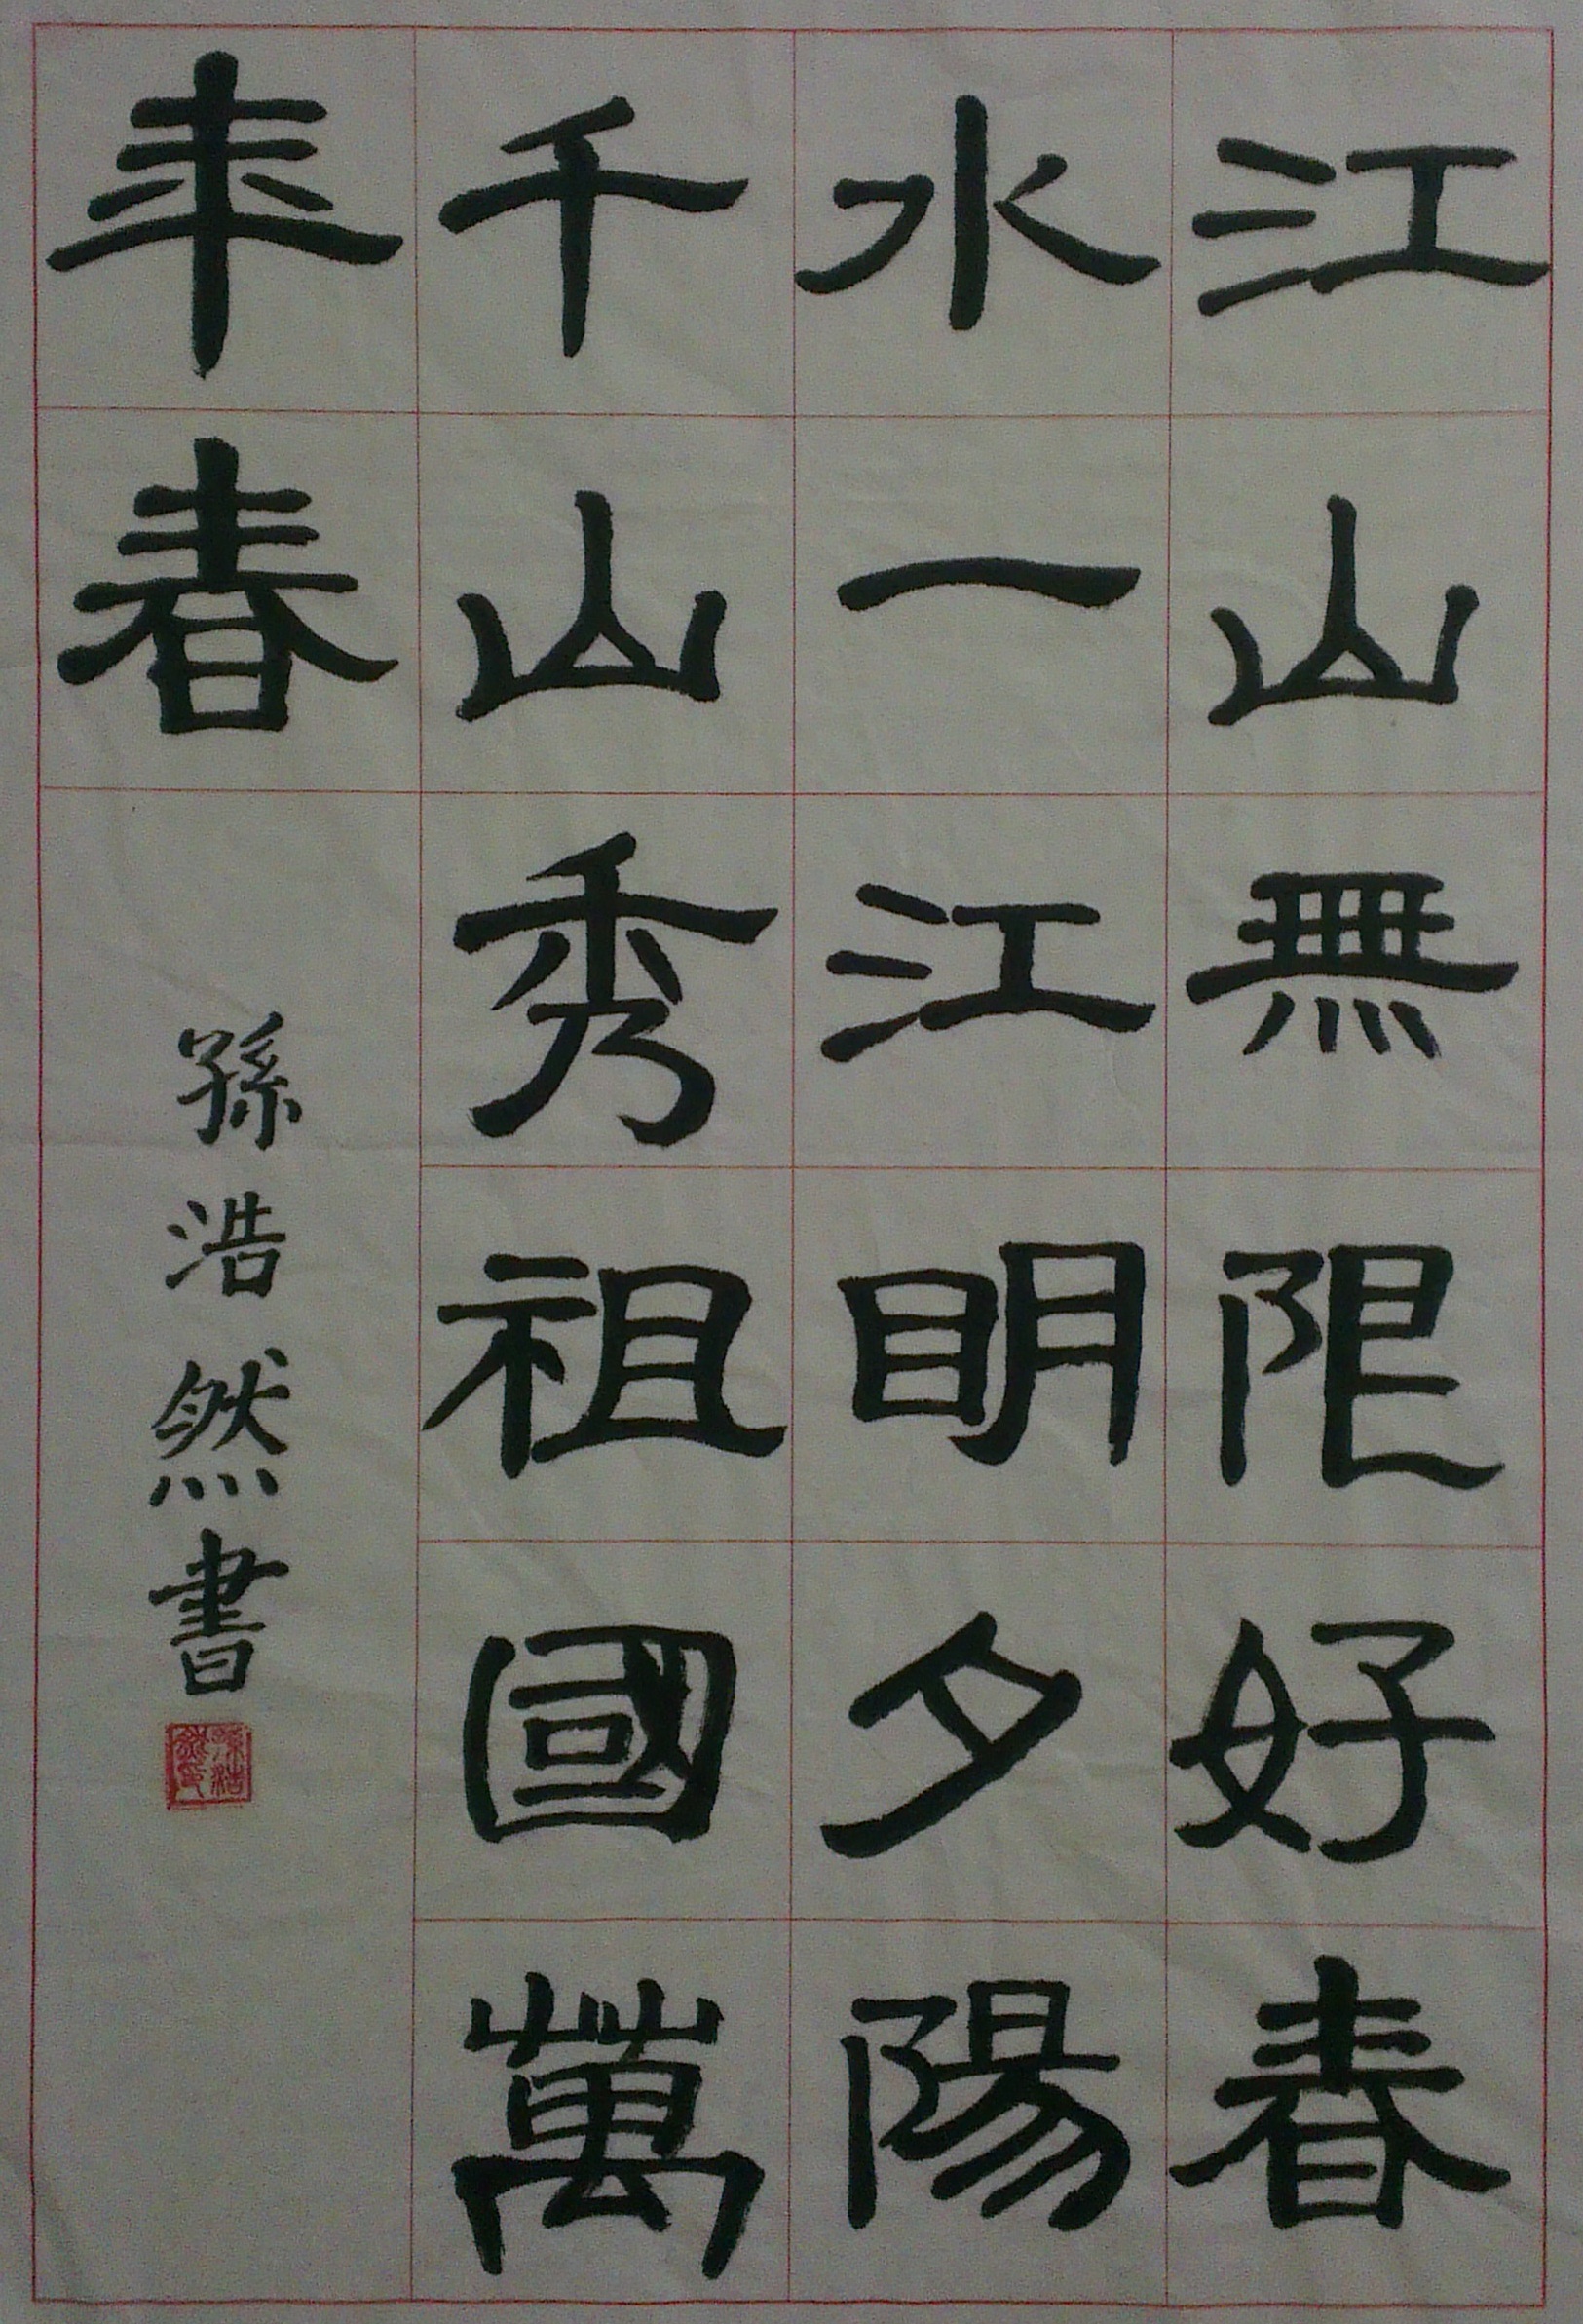 江山無限好春
水一江明夕陽
千山秀祖國萬
年春
孫浩然書